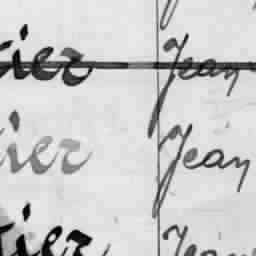 ier Jean
ier Jean
ier Jean